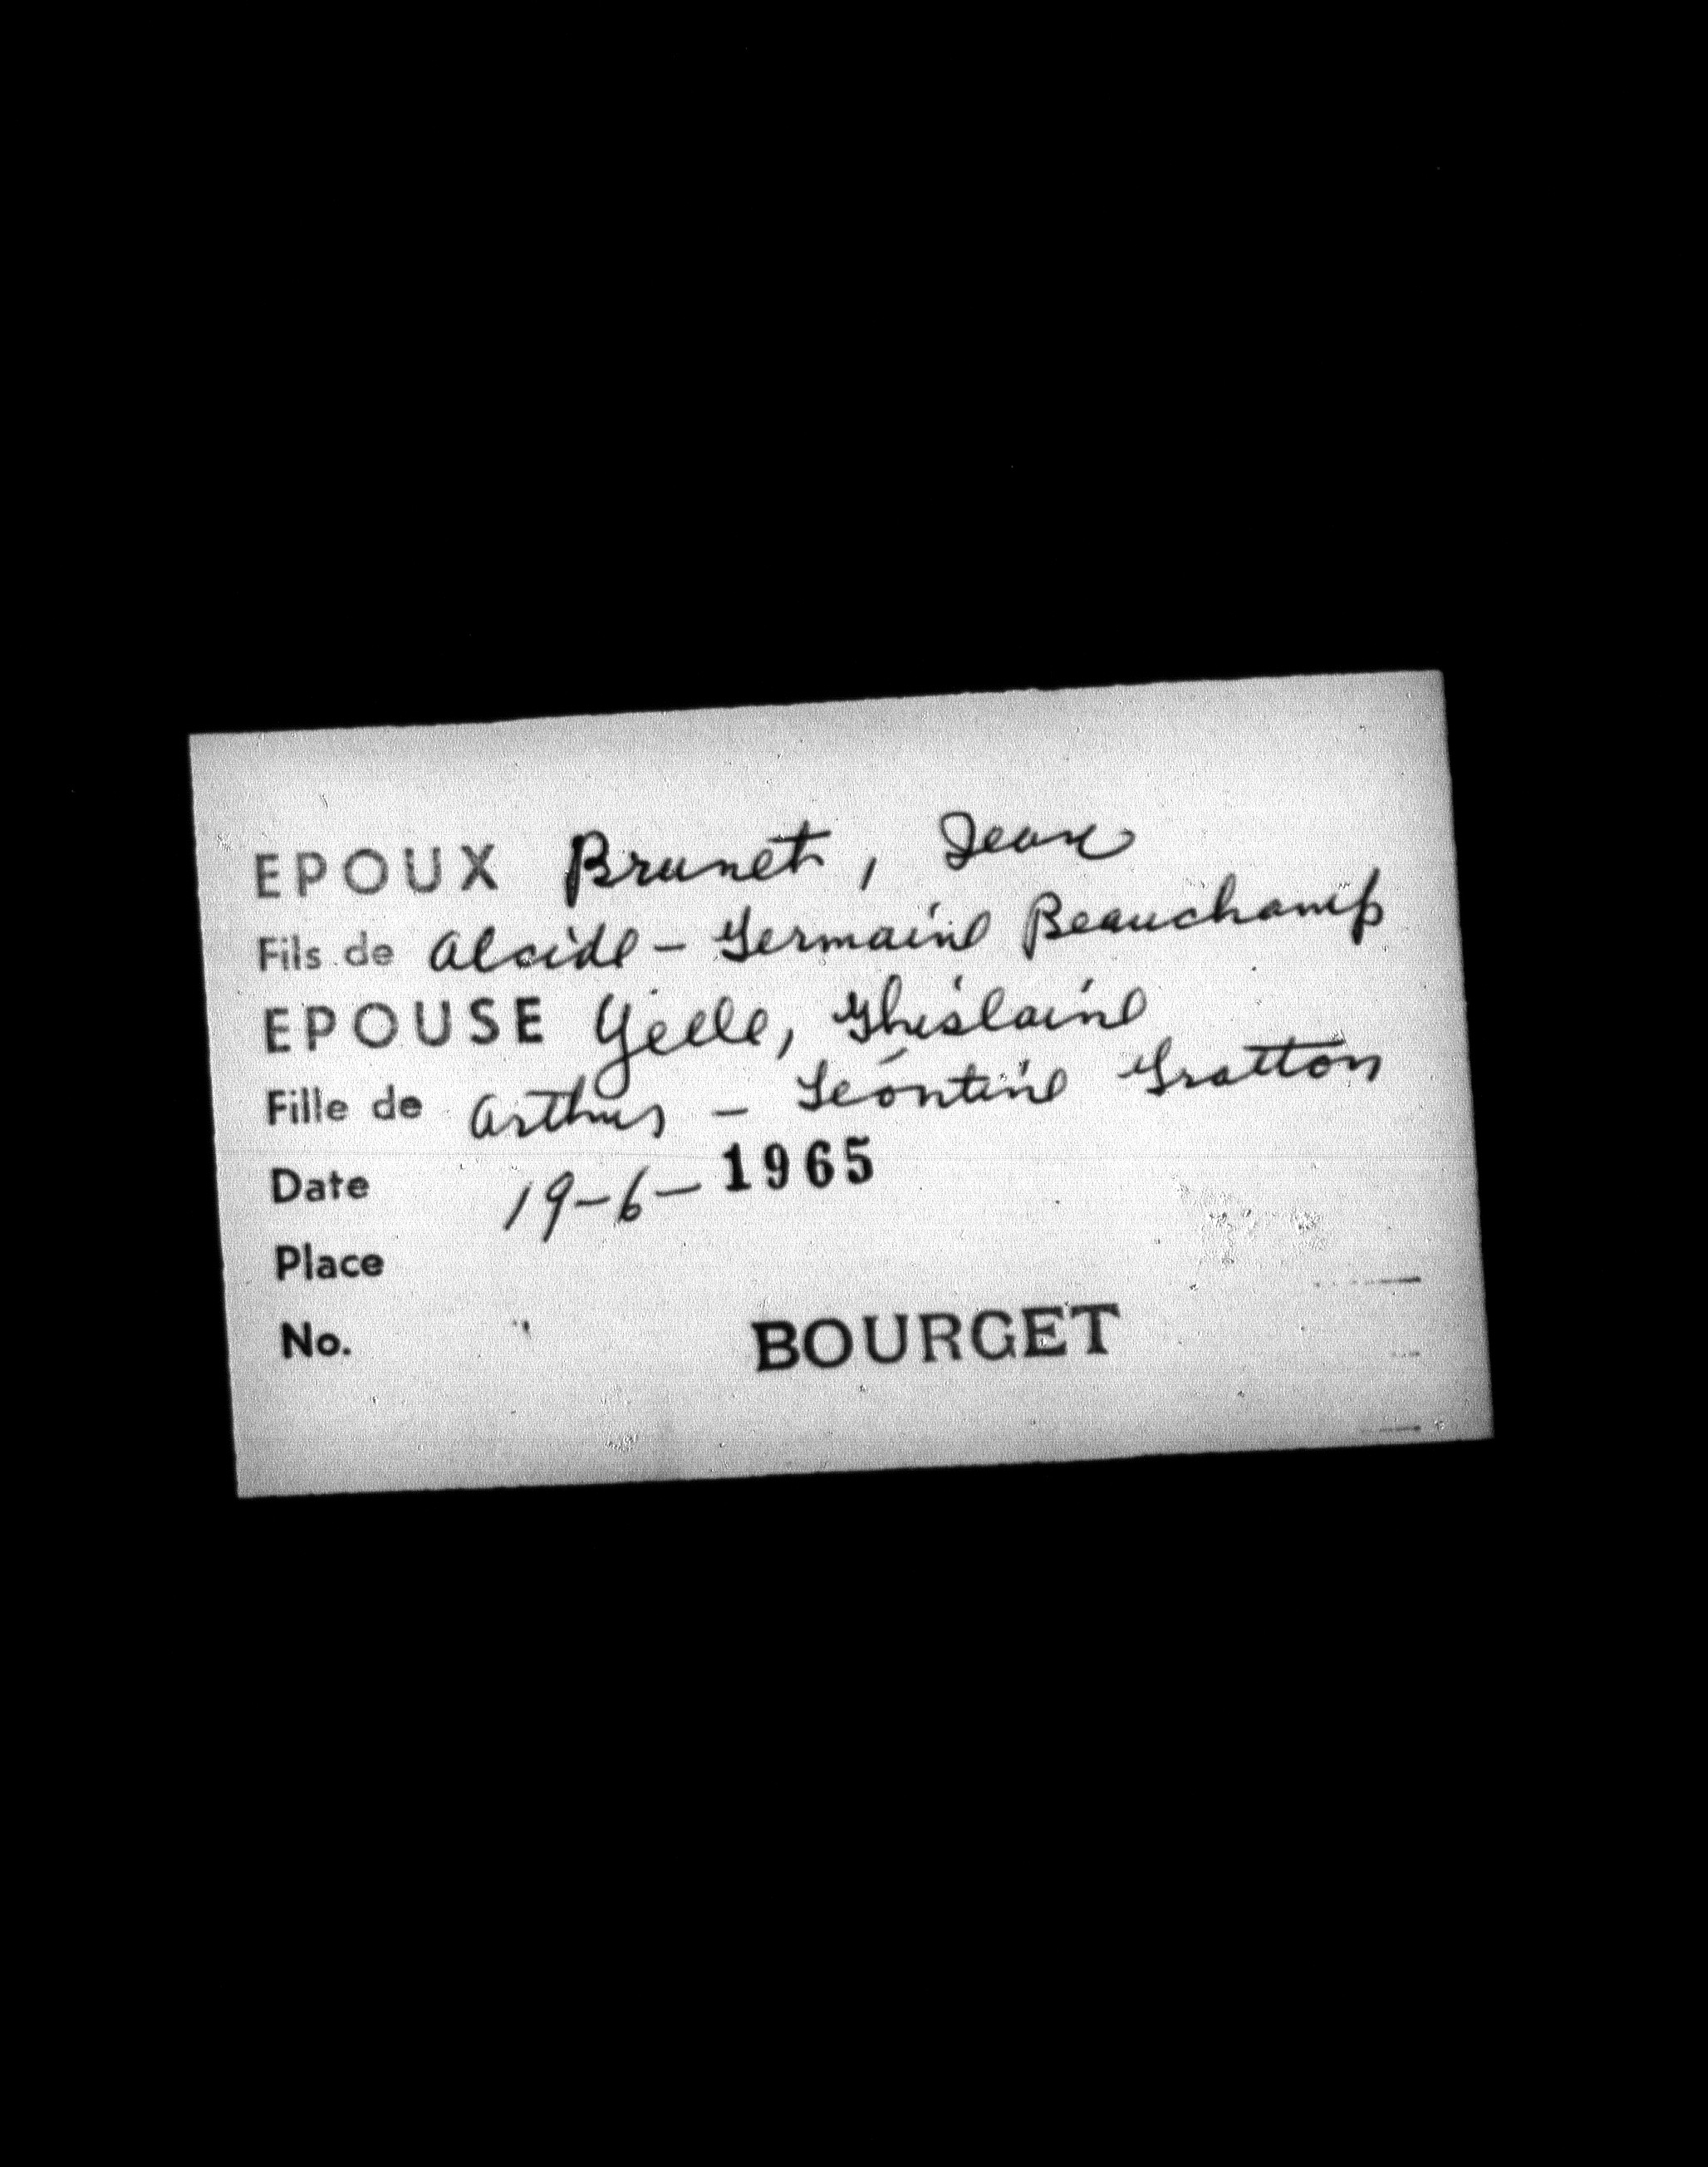 EPOUX Brunet, Jean
Fils de Alcide - Germaine Beauchamp
EPOUSE Yelle, Ghislaine
Fille de Arthur - Léontine Gratton
Date 19-6-1965
Place
No. BOURGET